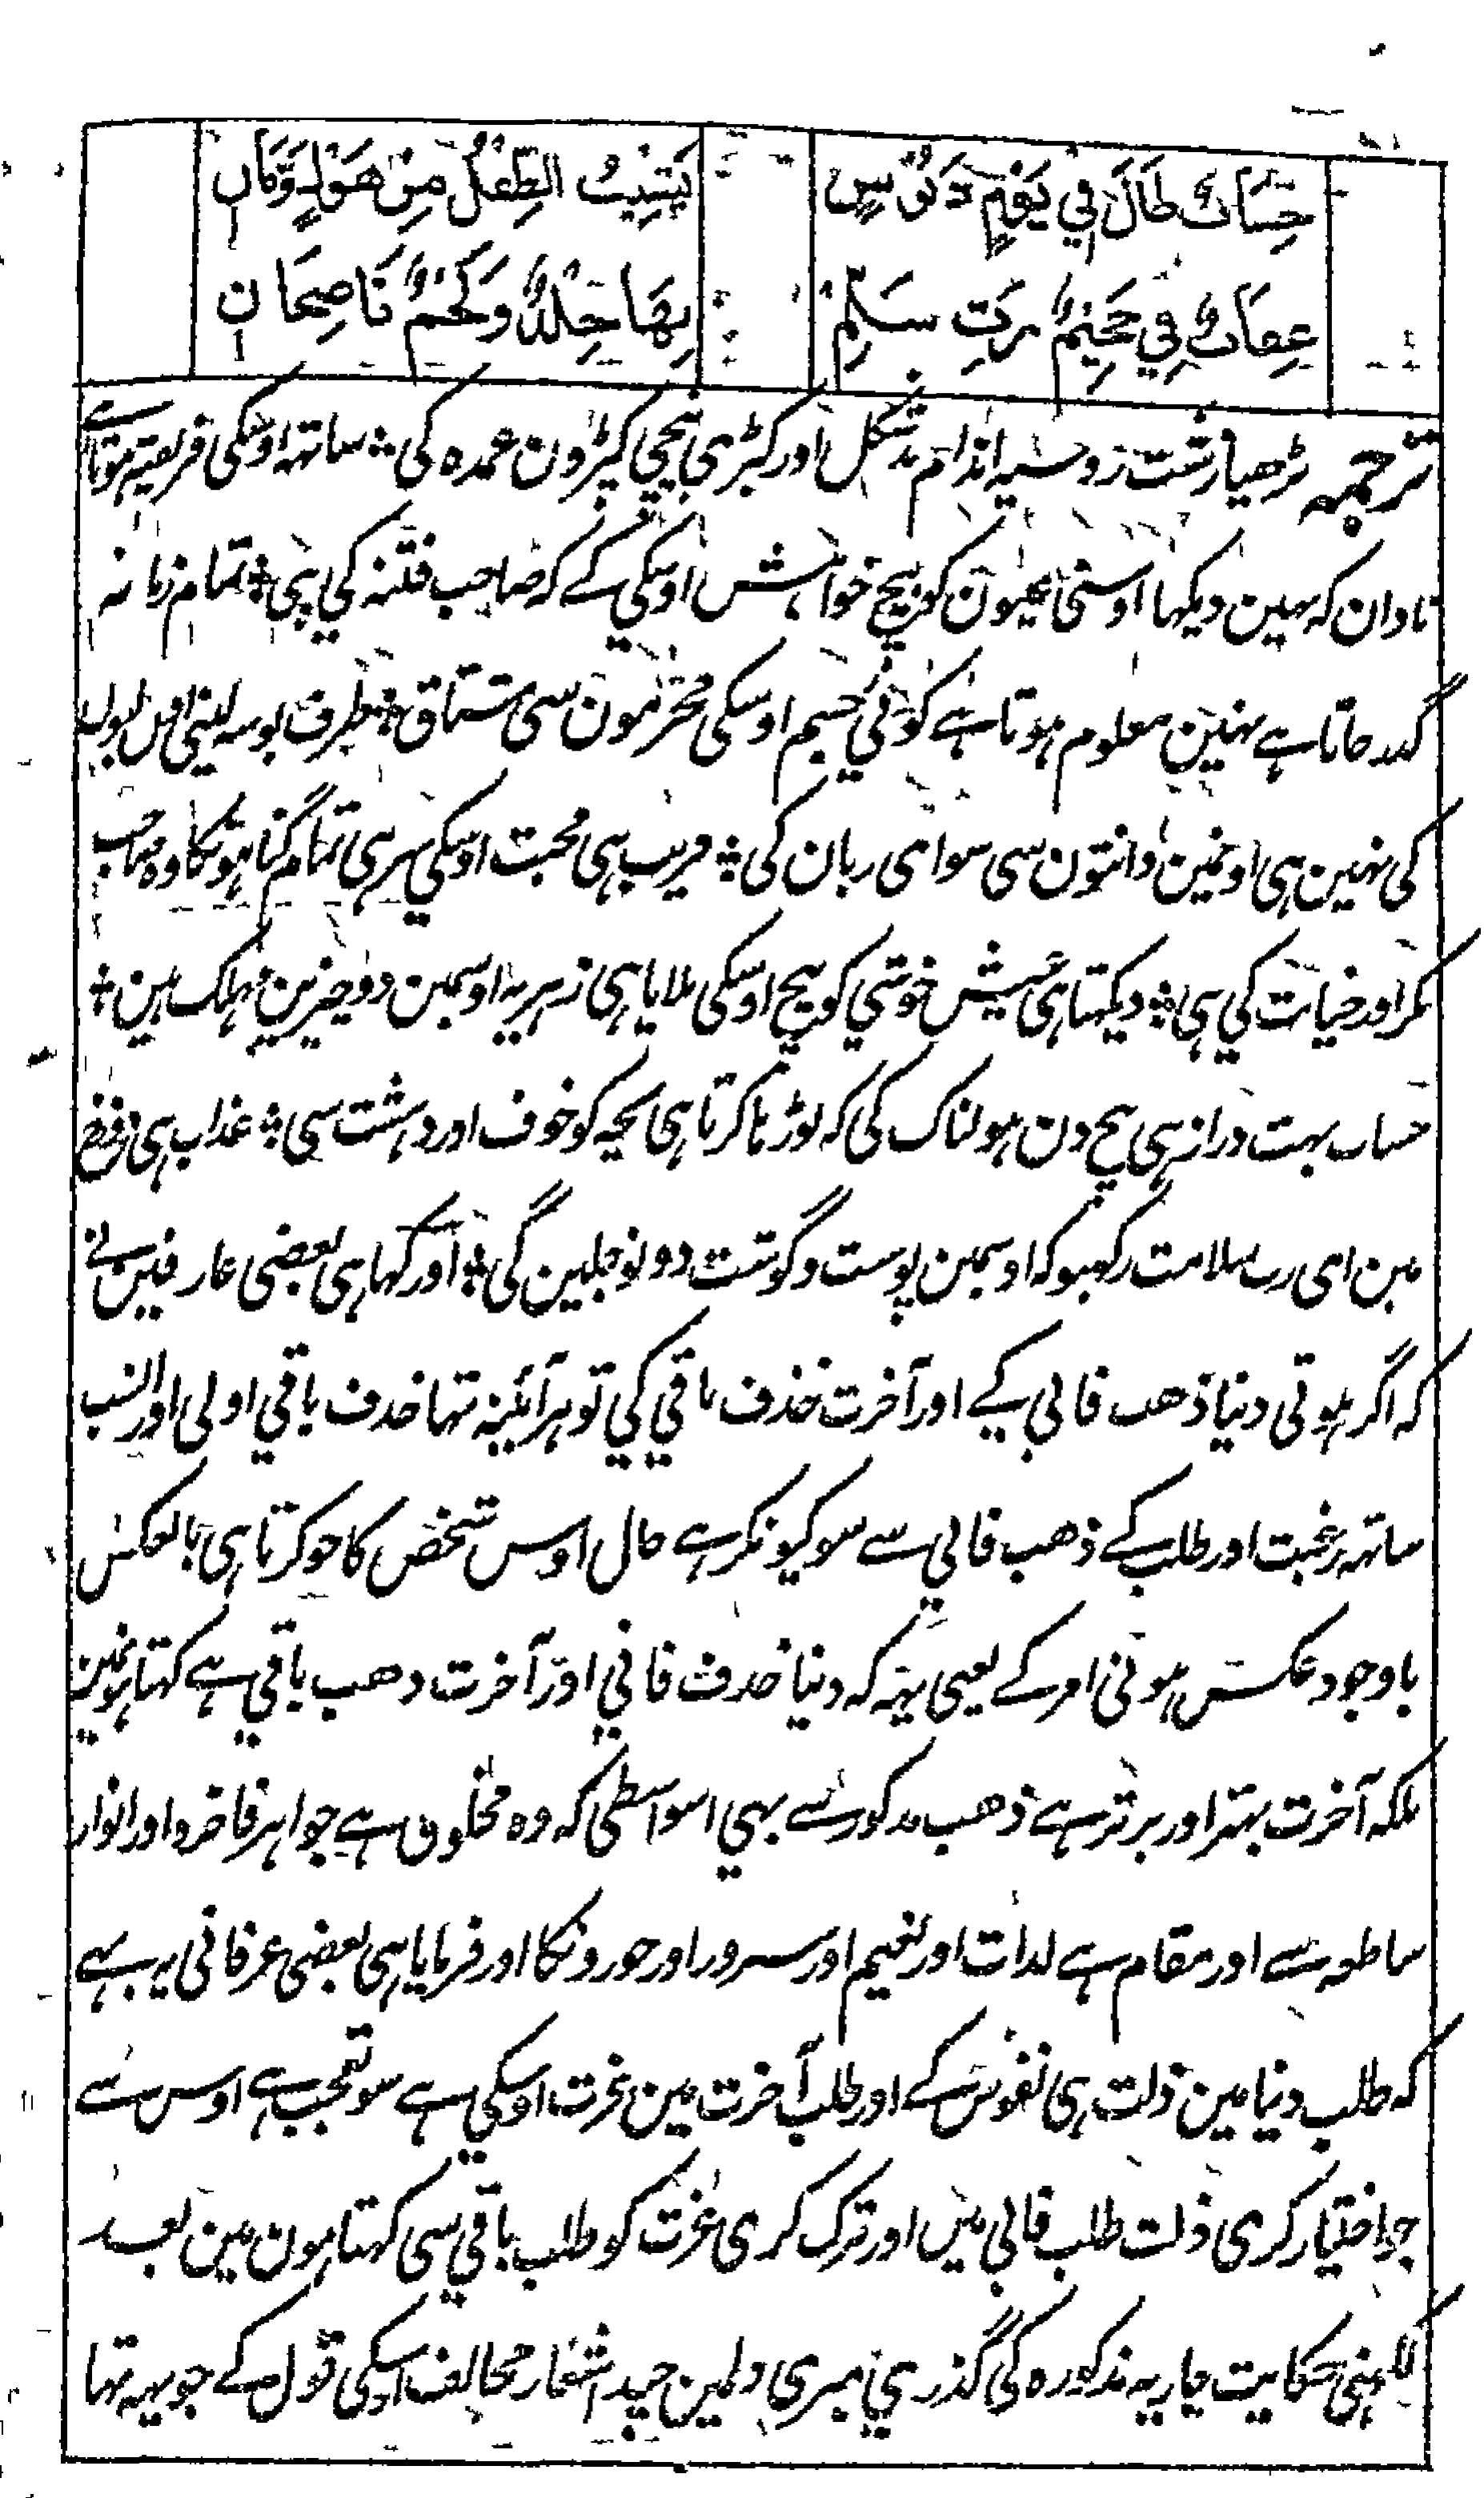 حِسَابٌ طَالَ فِي يَوْمٍ عَبُوْسٍ يَشِيْبُ الطِّفْلُ مِنْ هَوْلٍ
عِقَابٌ فِي جَحِيْمٍ رَبِّ سَلِّمْ بِهَا جِلْدٌ وَلَحْمٌ نَاضِجَانِ
ترجمہ بڑھیا زشت رو سیہ اندام بدشکل اور کبڑی بیچ کپڑون عمدہ کی ؛ ساتہہ اوسکی فریفتہ ہوتا ہے
نادان کہ نہین دیکہا اوسنی عیبون کو بیچ خواہش اوسکی کے کہ صاحب فتنہ کی ہی ؛ تمام زمانہ
گذر جاتا ہے نہین معلوم ہوتا ہے کوئی جسم اوسکی محرمون سی مشتاق ؛ طرف بوسہ لینی
کی نہین ہی اونمین دانتون سی سوای زبان کی ؛ فریب ہی محبت اوسکی سر ہی تمام گناہونکا وہ صاحب
مکر اور خیانت کی ہی ؛ دیکہتا ہی عیش خوشی کو بیچ اوسکی ملایا ہی زہر یہ اوسمین دو چیزین مہلک ہین ؛
حساب بہت دراز ہی بیچ دن ہولناک کی کہ بوڑہا کرتا ہی بچہ کو خوف اور دہشت سی ؛ عذاب ہی دوزخ
مین ای رب سلامت رکہیو کہ اوسمین پوست و گوشت دونو جلین گی ؛ اور کہا ہی بعضی عارفین نے
کہ اگر ہوتی دنیا ذھب فانی کے اور آخرت خذف باقی کی تو ہر آئینہ تہا خذف باقی اولی اور انسب
ساتہہ رغبت اور طلب کے ذھب فانی سے سو کیونکر ہے حال اوس شخص کا جو کرتا ہی بالعکس
باوجود عکس ہونی امر کے یعنی یہہ کہ دنیا خذف فانی اور آخرت ذھب باقی ہے کہتا ہونمین
بلکہ آخرت بہتر اور برتر ہے ذھب مذکور سے بہی اسواسطی کہ وہ مخلوق ہے جواہر فاخرہ اور انوار
ساطعہ سے اور مقام ہے لذات اور نعیم اور سرور اور حورونکا اور فرمایا ہی بعضی عرفانی یہ بہے
کہ طلب دنیا مین ذلت ہی نفوس کے اور طلب آخرت مین عزت اوسکی ہے سو تعجب ہے اوس سے
جو اختیار کری ذلت طلب فانی مین اور ترک کری عزت کو طلب باقی سی کہتا ہون مین بعد
لکہنی حکایت جاریہ مذکورہ کی گذری میری دلمین چند اشعار مخالف اوسکی قول کے جو یہہ تہا